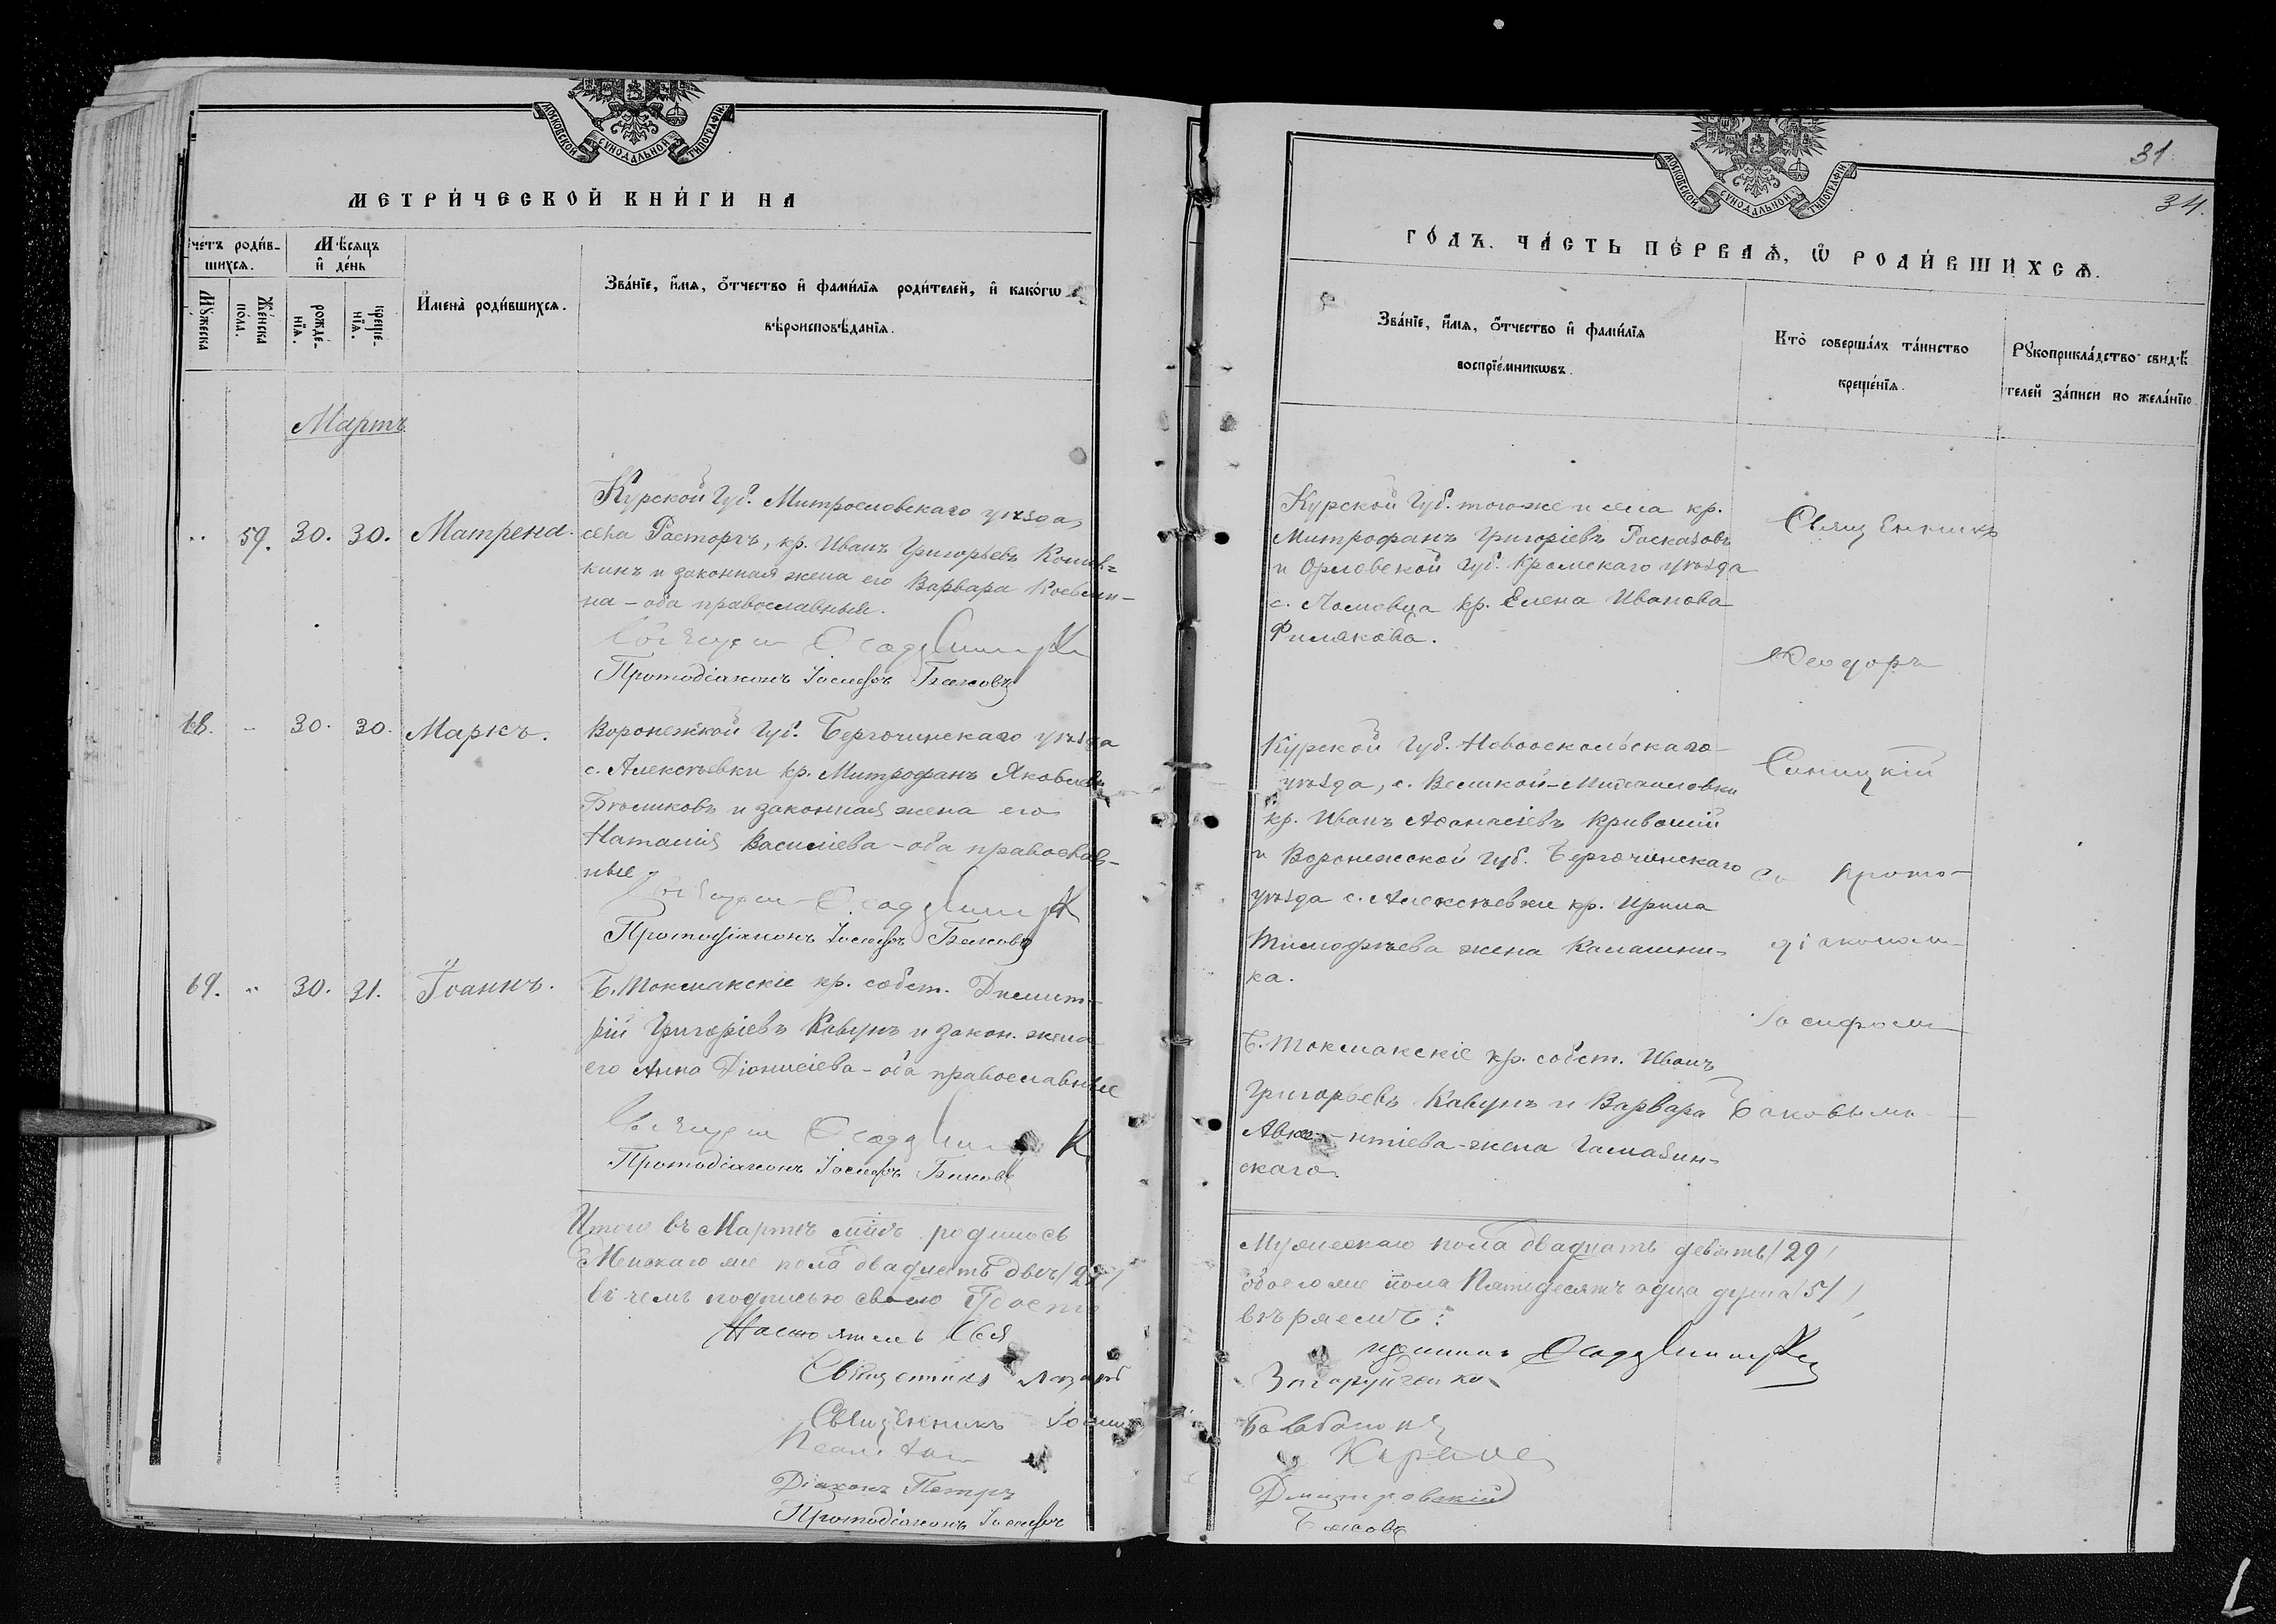 МОСКОВСКОЙ СУНОДАЛЬНОЙ ТИПОГРАФІИ
МЕТРИ́ЧЕСКОЙ КНИ́ГИ НА
че́тъ роди́в-
шихсѧ.
Мѣ́сѧцъ
и҆ де́нь
Мꙋ́жеска
Же́нска
по́ла.
рожде́-
нїѧ.
креще́-
нїѧ.
И҆мена̀ роди́вшихсѧ.
Зва́нїе, и҆́мѧ, ѻ҆́тчество и҆ фами́лїѧ роди́телей, и҆ како́гѡ
вѣроисповѣ́данїѧ.
Мартъ
59. 30. 30. Матрена.
Курской Губ. Митрословскаго уѣзда,
села Расторгъ, кр. Иванъ Григорьевъ
кинъ и законная жена его Варвара
на - оба православные.
Протодіаконъ Іосифъ Баковъ
68. - 30. 30. Маркъ.
Воронежской Губ. Бирюченскаго уѣзда
с. Алексѣевки кр. Митрофанъ Яковлевъ
и законная жена его
Наталія Василіева - оба православ-
ные.
Протодіаконъ Іосифъ Баковъ
69. " 30. 31. Іоаннъ.
Б. Токмакскіе кр. собст. Димит-
рій Григоріевъ Кавунъ и закон. жена
его Анна Діонисіева - оба православные
Протодіаконъ Іосифъ Баковъ
Итого въ Мартѣ мцѣ родилось
Женскаго же пола двадцать два /22/
въ чемъ подписью своею
Настоятель
Священникъ
Священникъ
Діаконъ Петръ
Протодіаконъ Іосифъ
31.
34.
МОСКОВСКОЙ СУНОДАЛЬНОЙ ТИПОГРАФІИ
ГО́ДЪ. ЧА́СТЬ ПЕ́РВАѦ, Ѡ҆ РОДИ́ВШИХСѦ.
Зва́нїе, и҆́мѧ, ѻ҆́тчество и҆ фами́лїѧ
воспрїе́мникѡвъ.
Кто̀ соверша́лъ та́инство
креще́нїѧ.
Рꙋкоприкла́дство свидѣ́-
телей за́писи по жела́нїю.
Курской Губ. того же и села кр.
Митрофанъ Григоріевъ Расказовъ
и Орловской Губ. Кромскаго уѣзда
с. Ломовца кр. Елена Иванова
Филякова.
Священникъ
Ѳеодоръ
Курской Губ. Новооскольскаго
уѣзда, с. Великой-Михаиловки
кр. Иванъ Аѳанасіевъ
и Воронежской Губ. Бирюченскаго
уѣзда с. Алексѣевки кр. Ирина
Тимофѣева жена Калашни-
ка.
Синицкій
съ Прото-
діакономъ
Іосифомъ
Баковымъ
Б. Токмакскіе кр. собст. Иванъ
Григорьевъ Кавунъ и Варвара
жена
скаго.
Мужескаго пола двадцать девять /29/
обоего же пола Пятьдесятъ одна душа /51/
Загоруйченко
Балабановъ
Дмитровскій
Баковъ